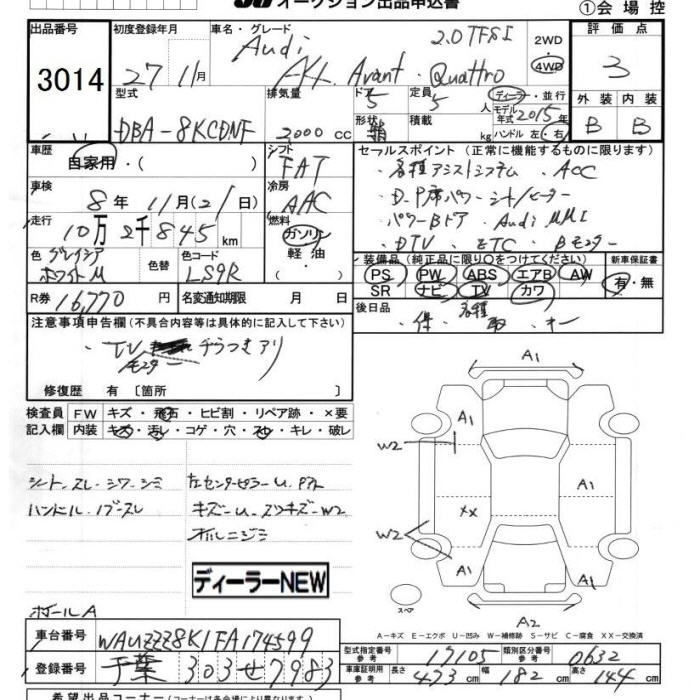 オークション出品申込書
①会場控
出品番号 3014
初度登録年月 27 11月
車名・グレード Audi A4 Avant・Quattro 2.0TFSI
2WD 4WD
評価点 3
型式 DBA-8KCDNF
排気量 2000 cc
ドア 5
形状
定員 5 人
積載 kg
ディーラー・並行
モデル年式 2015年
ハンドル 左・右
外装 内装
B B
車歴 自家用・( )
シフト FAT
セールスポイント(正常に機能するものに限ります)
・各種アシストシステム・ACC
・D.P席パワーシート/ヒーター
・パワーBドア・Audi MMI
・DTV・ETC・Bモニター
車検 8年 11月(21日)
冷房 AAC
走行 10万2千845km
燃料 ガソリン 軽油 ・( )
色 グレイシアホワイトM
色替
色コード LS9R
装備品(純正品に限り○をつけてください)
PS PW ABS エアB AW
SR ナビ TV カワ
新車保証書 有・無
R券 16,770円
名変通知期限 月 日
後日品
・保・各種取・
注意事項申告欄(不具合内容等は具体的に記入して下さい)
・TV モニター チラつきアリ
修復歴 有 〔箇所 〕
検査員記入欄
FW キズ・飛石・ヒビ割・リペア跡・×要
内装 キズ・汚レ・コゲ・穴・スレ・キレ・破レ
シート.スレ.シワ.シミ
ハンドル・ノブ-スレ
キズ-U.スリキズ-W2
ディーラーNEW
ホールA
A1
A1
W2
A1
XX
W2
A1
A1
スペア
A2
A-キズ E-エクボ U-凹み W-補修跡 S-サビ C-腐食 XX-交換済
車台番号 WAUZZZ8K1FA174599
登録番号 千葉 303 せ 7983
型式指定番号 参考 17105
類別区分番号 参考 0632
車庫証明用 参考 長さ 473cm 幅 182cm 高さ 144cm
希望出品コーナー(コーナーは各会場により異なります。)